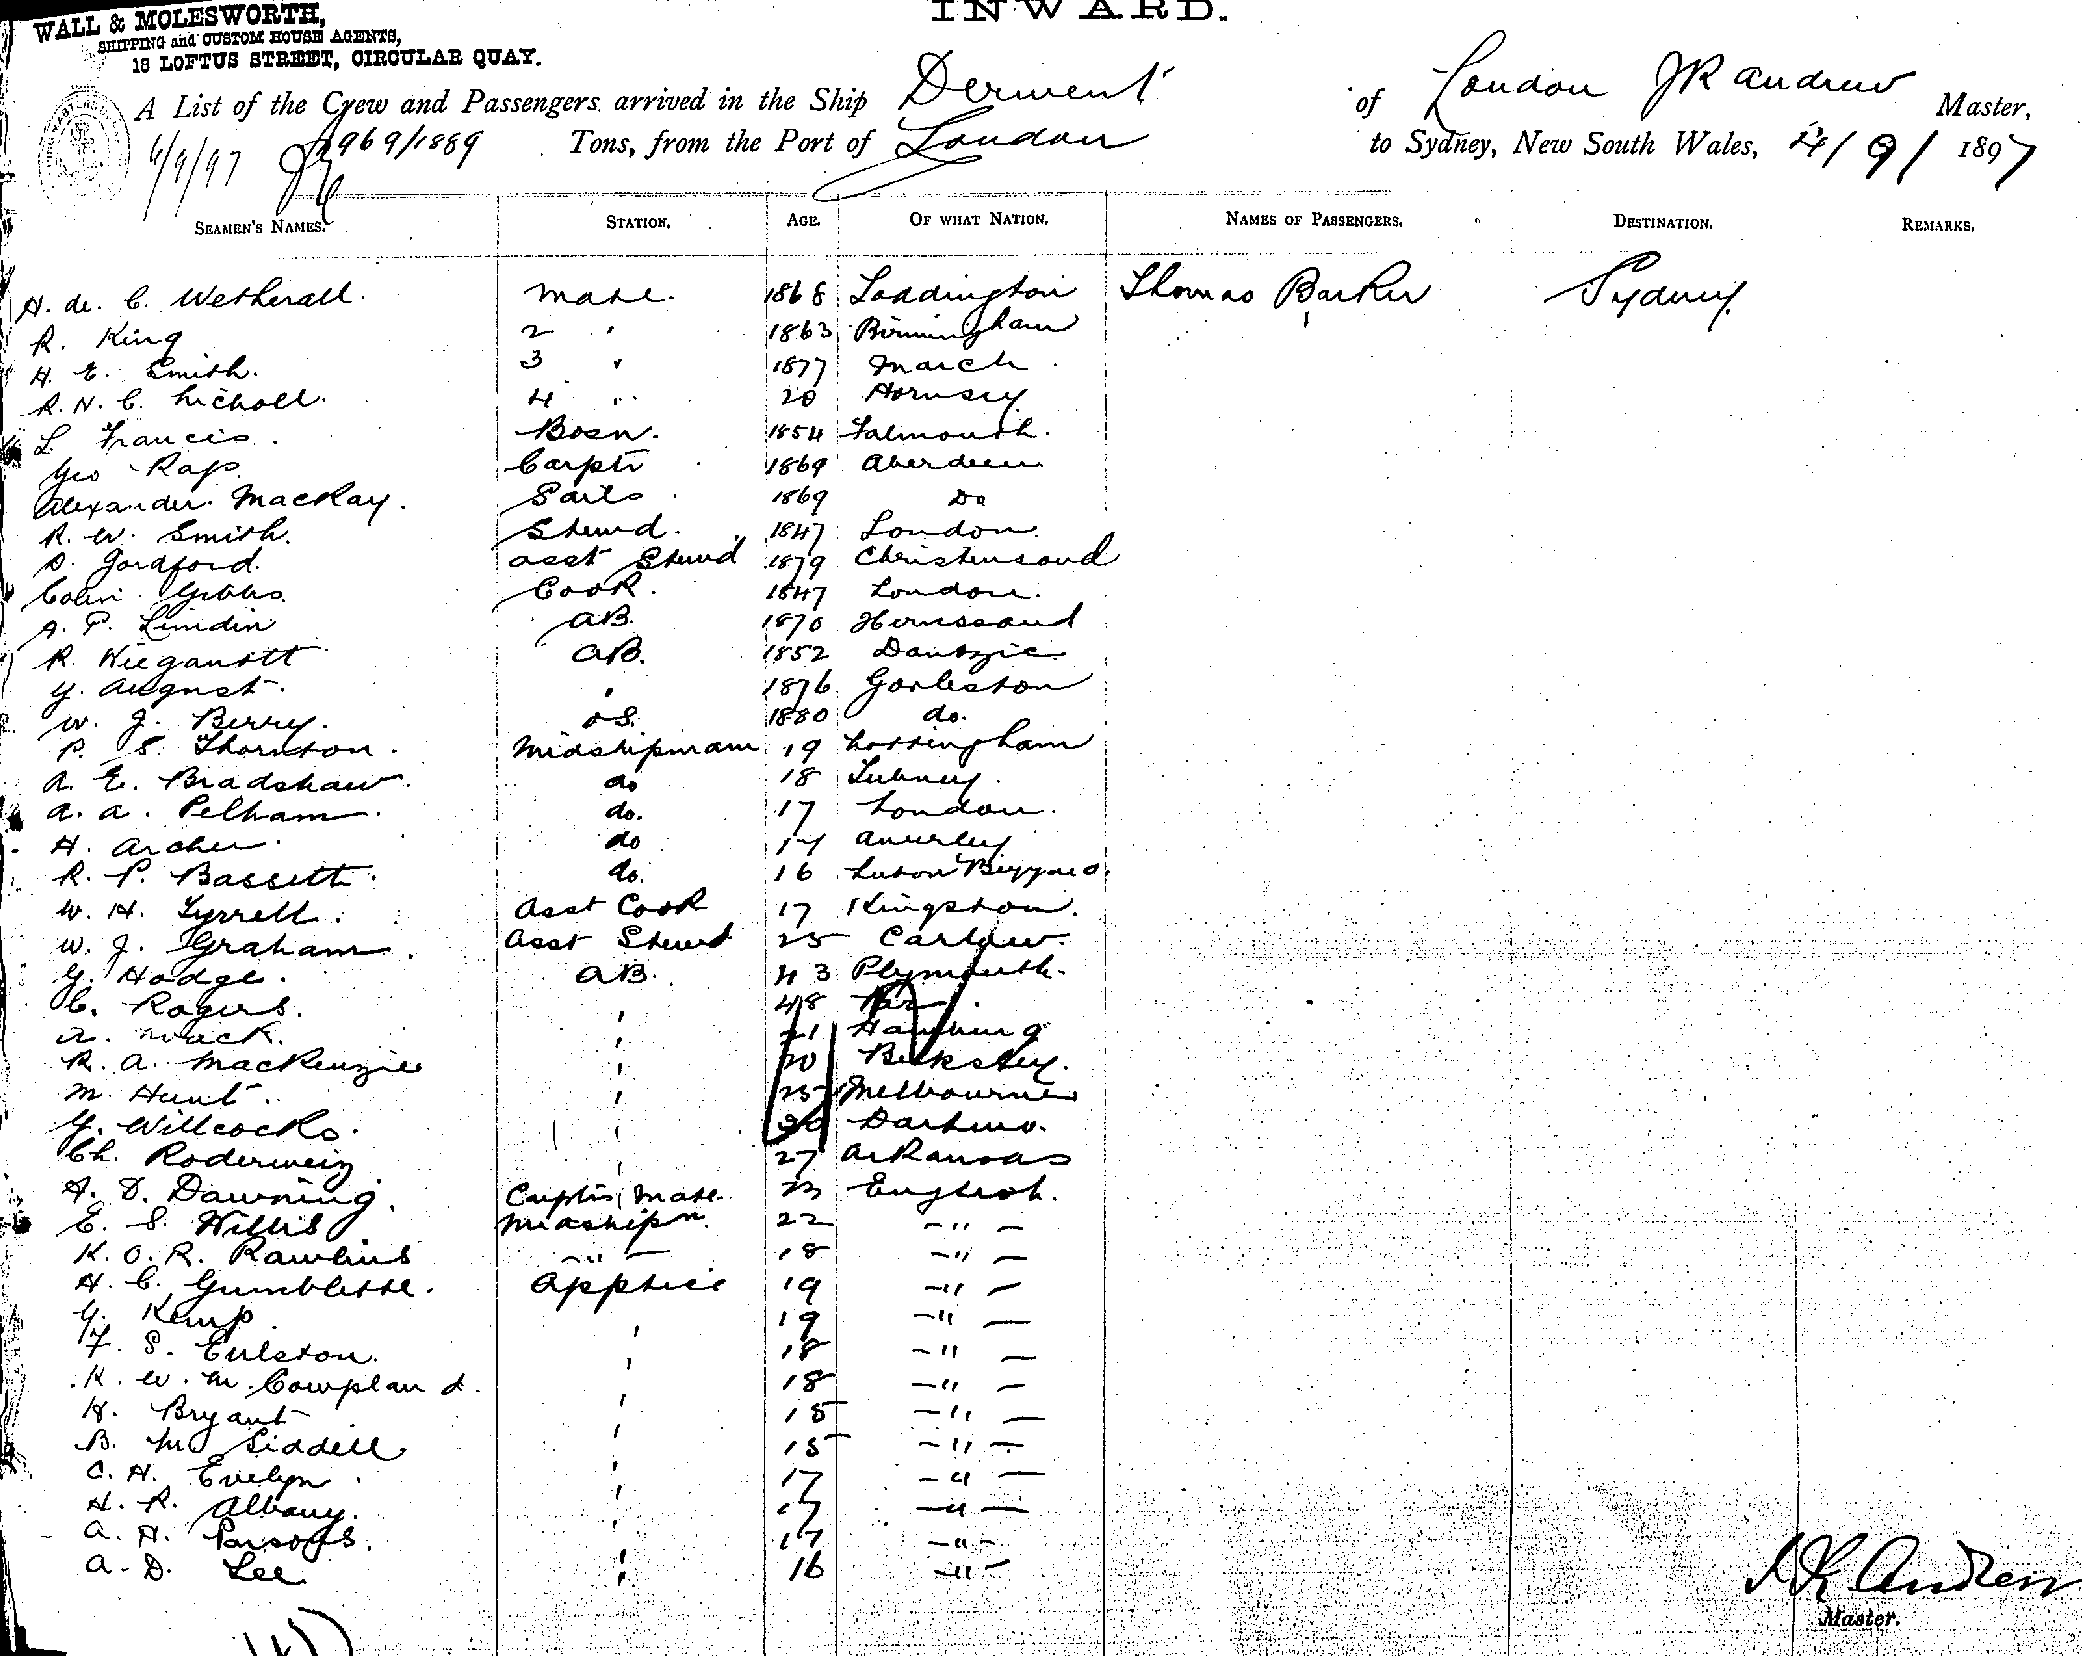 INWARD.
WALL & MOLESWORTH,
SHIPPING and CUSTOM HOUSE AGENTS,
18 LOFTUS STREET, CIRCULAR QUAY.
A List of the Crew and Passengers arrived in the Ship Derwent of London J R Andrew Master,
6/9/97 1969/1889 Tons, from the Port of London to Sydney, New South Wales, 4/9/1897
SEAMEN'S NAMES. STATION. AGE. OF WHAT NATION. NAMES OF PASSENGERS. DESTINATION. REMARKS.
H. de. C. Wetherall. Mate. 1868 Loddington Thomas Barker Sydney.
R. King 2 " 1863 Birmingham
H. E. Smith. 3 " 1877 March
R. N. C. Nicholl. 4 " 20 Hornsey
L Francis. Bosn. 1854 Falmouth.
Geo Rap Carptr 1869 Aberdeen
Alexander MacKay. Sails 1869 Do
R. W. Smith. Stewd. 1847 London.
Asst Stewd 1879
Colin Gibbs Cook. 1847 London.
A. P. AB. 1870
R. AB. 1852 Dantzic
G. August. " 1876 Gorleston
W. J. Berry. OS. 1880 do.
P. S. Thornton. Midshipman 19 Nottingham
A. E. Bradshaw. do 18
A. A. Pelham. do. 17 London.
H. Archer. do Anerley
R. P. Bassett. do. 16
W. H. Tyrrell. Asst Cook 17 Kingston.
W. J. Graham. Asst Stewd 25 Carlow.
G. Hodge. AB. 43 Plymouth.
C. Rogers. " 48 Par
Mack. " 21 Hamburg
R. A. MacKenzie " 20
M. Hunt. " 25 Melbourne
G. Willcocks. "
Ch. " 27 Arkansas
A. D. Dawning. Carptrs Mate 23 English.
E. S. Willis Midshipn. 22 -"-
K. O. R. Rawlins -"- 18 -"-
H. C. Gumblette. Apptice 19 -"-
G. Kemp " 19 -"-
F. S. Eulston. " 18 -"-
K. W. M. Cowpland. " 18 -"-
H. Bryant " 15 -"-
B. M. Siddell " 15 -"-
C. H. Evelyn " 17 -"-
H. R. Albany. " 17 -"-
A. H. Parsons. " 17 -"-
A. D. Lee " 16 -"-
J R Andrew
Master.